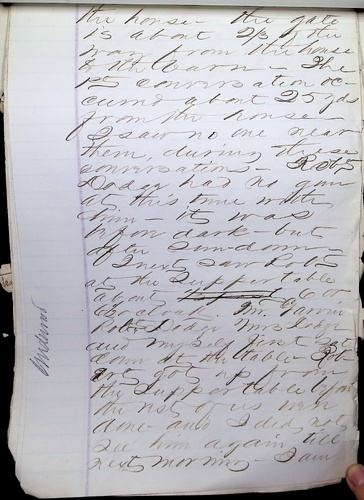 the house - the gate
is about 2/3 of the
way from the house
to the barn - The
1st conversation oc-
cured about 25 yds
from the house -
I saw no one near
them, during these
conversations - Robt
Dodge had no gun
at this time with
him - it was
upon dark - but
after sun-down -
I next saw Robt
at the Supper table
about 6 or
6 1/2 oclock. Mr.
Robt Dodge Mrs Dodge
and myself first sat
down at the table - Rob-
ert got up from
the Supper table before
the rest of us were
done and I did not
see him again till
next morning - I am